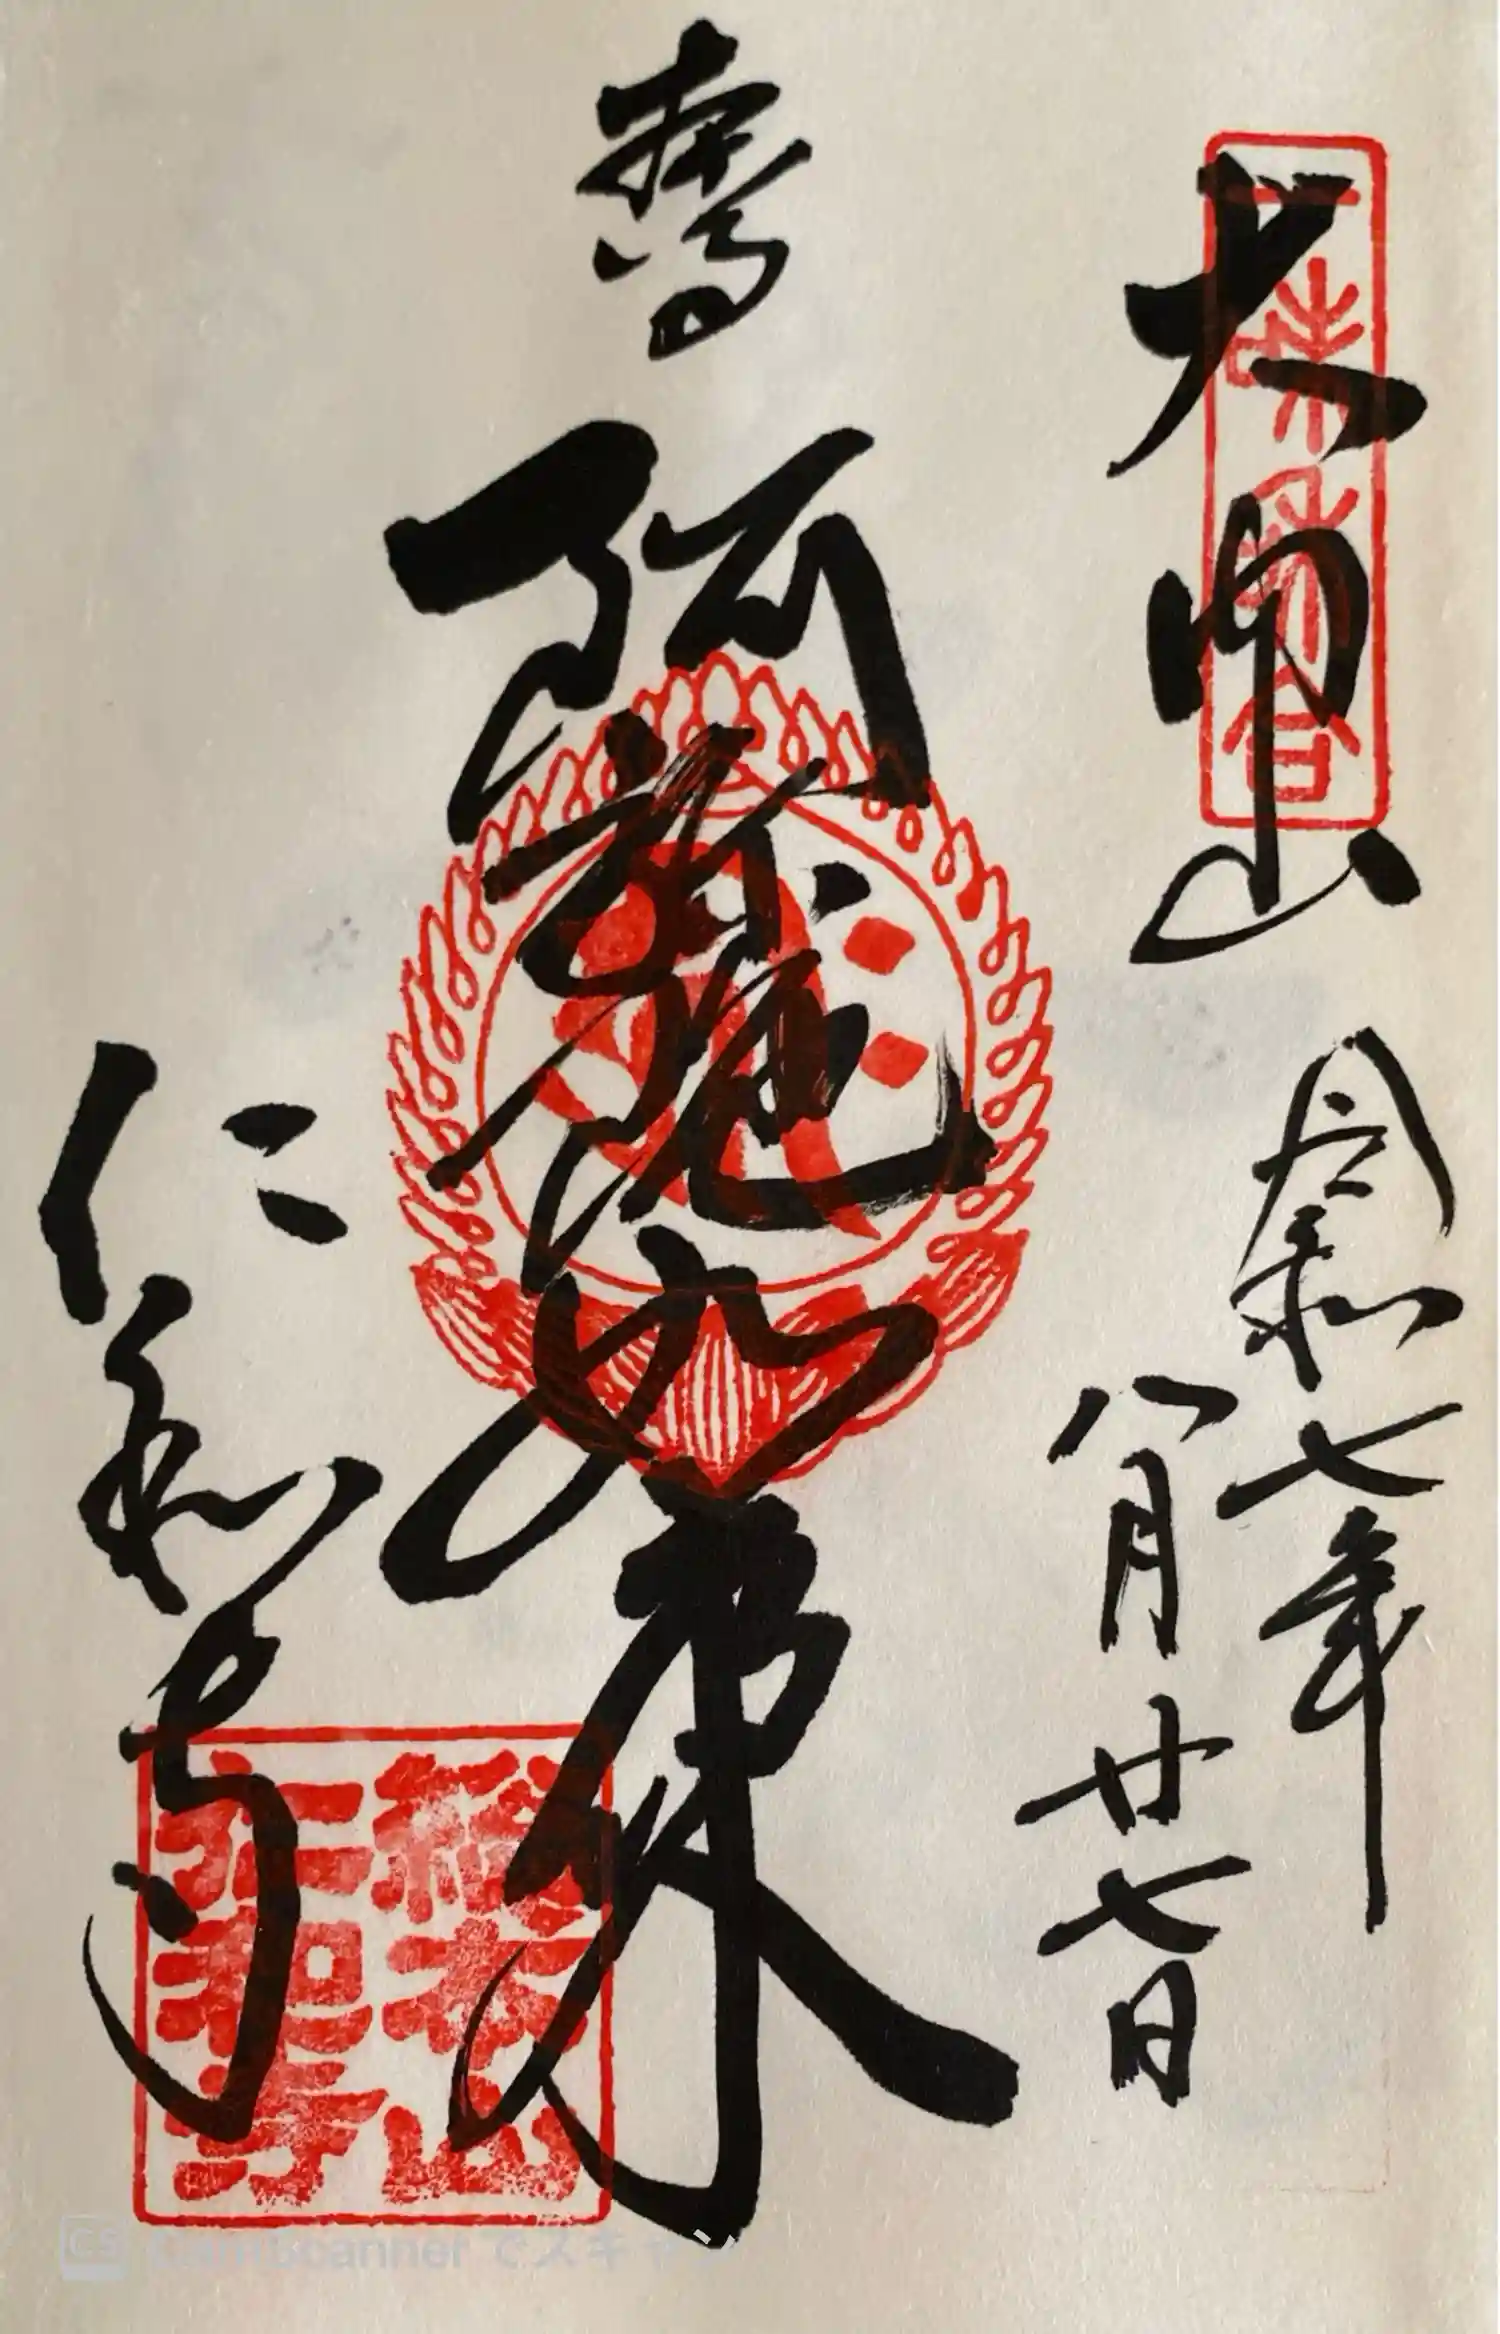 大内山
令和七年
八月廿七日
奉
阿弥陀如来
仁和寺
総本山
仁和寺
CS CamScanner でスキャン